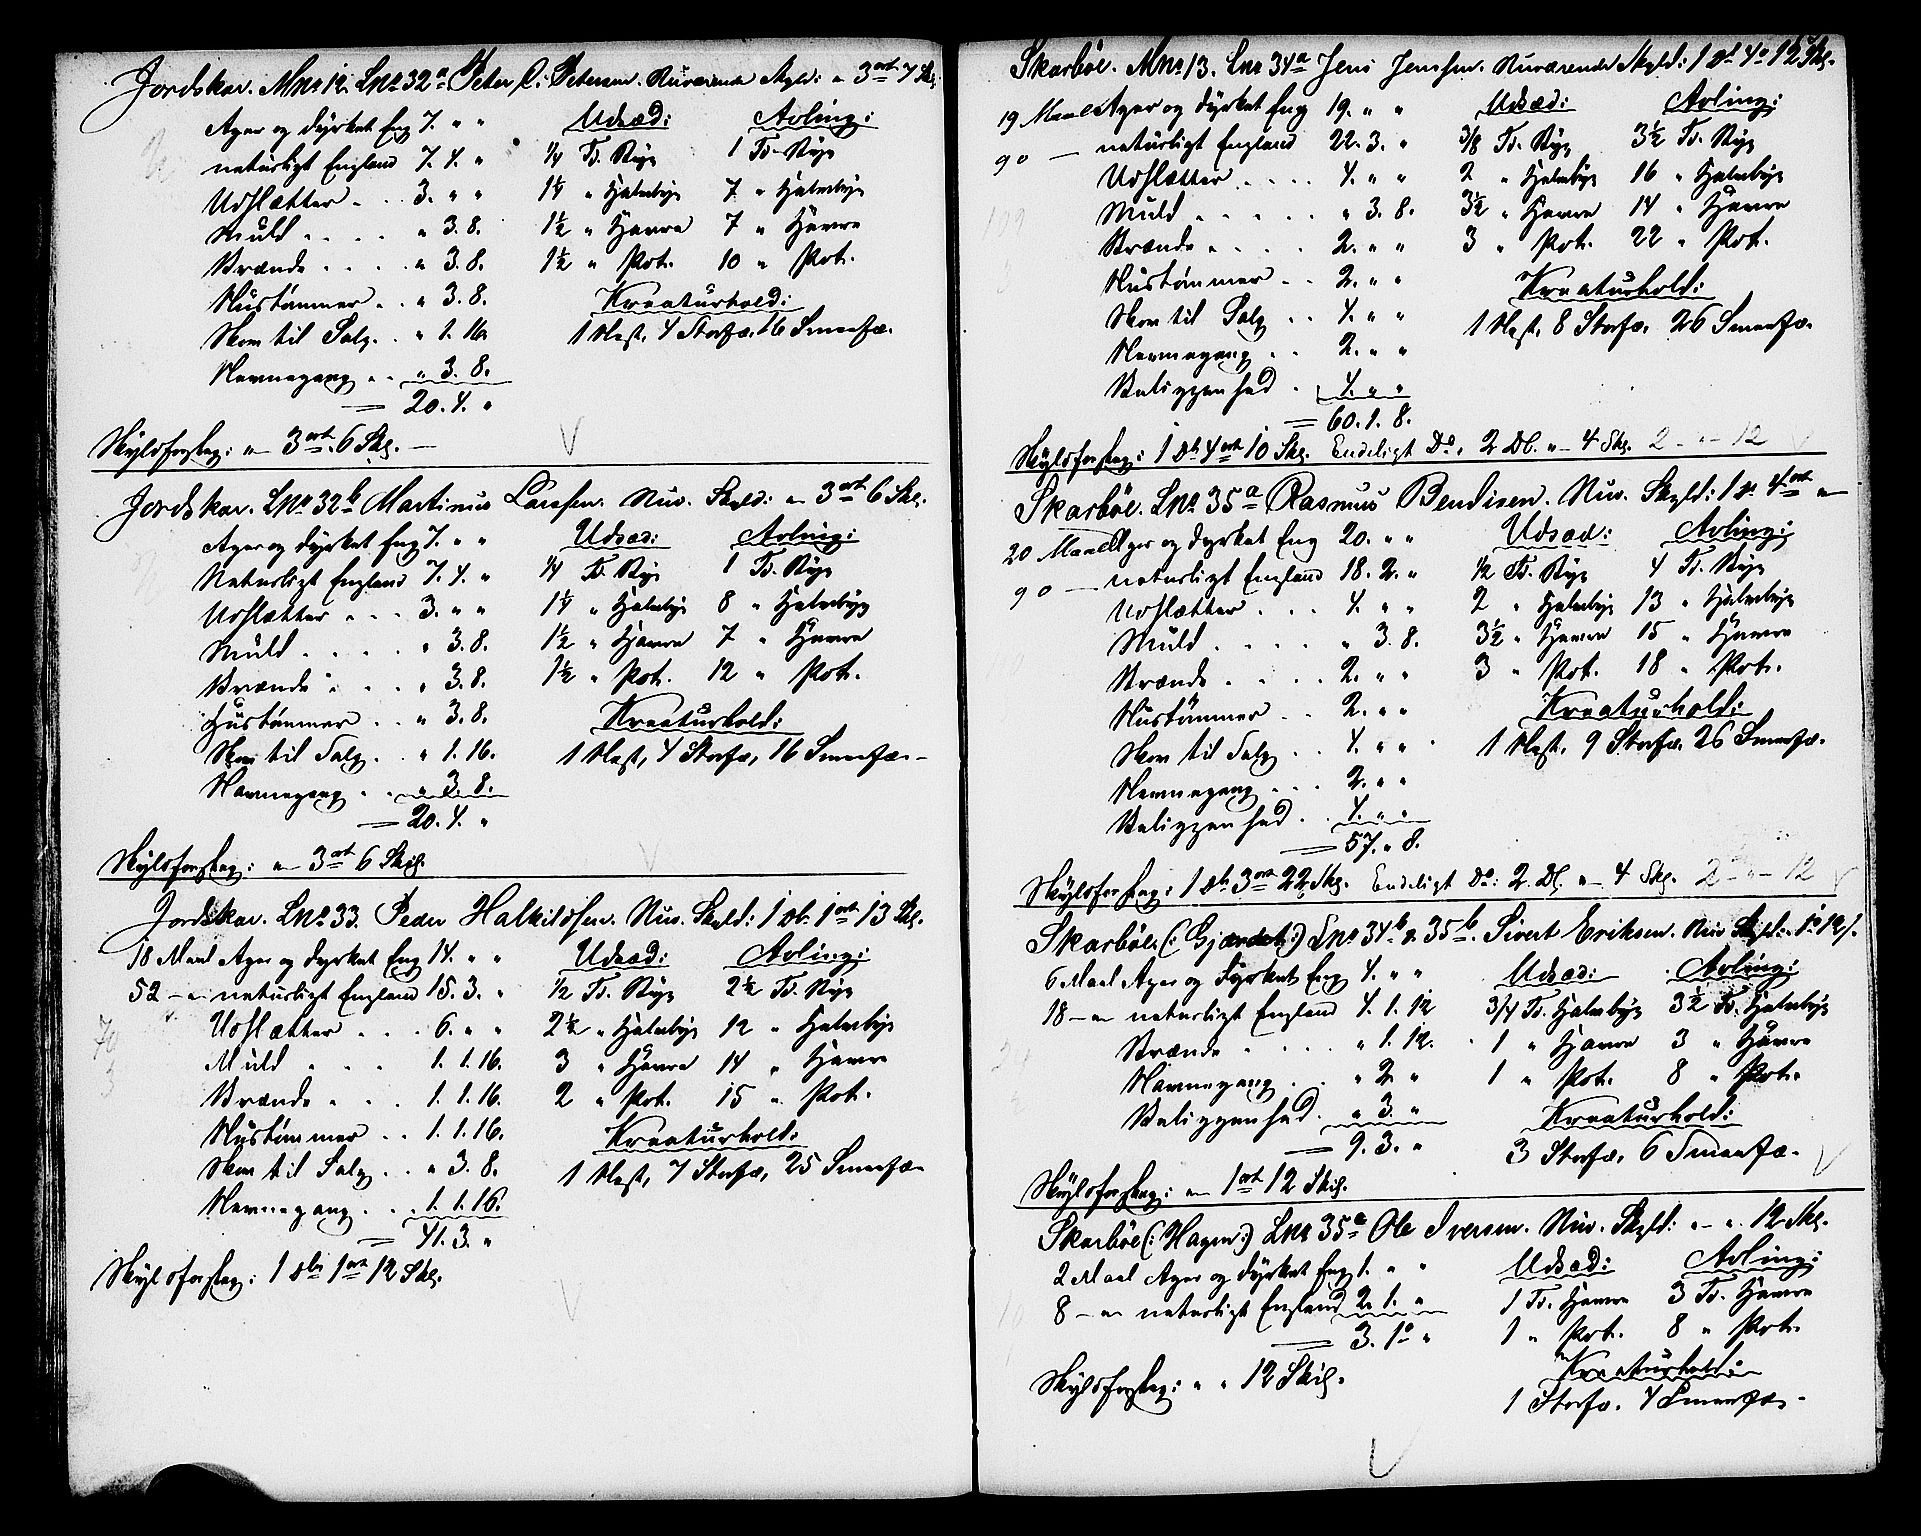 Jordskar. Mno 12. Lno 32a Peter C. Petersen. Nuværende Skyld: „ 3 ort 7 Sk.
Ager og dyrket Eng 7. „ „ Udsæd: Avling:
naturligt England 7. 4. „ ¼ Td. Byg 1 Td. Byg
Udslætter . . . 3. „ „ 1¼ „ Halvbyg 7 „ Halvbyg
Muld . . . . „ 3. 8. 1½ „ Havre 7 „ Havre
Brænde . . . . „ 3. 8. 1½ „ Pot. 10 „ Pot.
Hustømmer . . „ 3. 8. Kreaturhold:
Skov til Salg . . „ 1. 16. 1 Hest, 4 Storfæ. 16 Smaafæ.
Havnegang . . „ 3. 8.
= 20. 4. „
Skyldforslag: „ 3 ort. 6 Sk. —
Jordskar. Lno 32b Martinus Larssen. Nuv. Skyld: „ 3 ort 6 Sk.
Ager og dyrket Eng 7. „ „ Udsæd: Avling:
Naturligt England 7. 4. „ ¼ Td. Byg 1 Td. Byg
Udslætter . . . 3. „ „ 1¼ „ Halvbyg 8 „ Halvbyg
Muld . . . . „ 3. 8. 1½ „ Havre 7 „ Havre
Brænde . . . „ 3. 8. 1½ „ Pot. 12 „ Pot.
Hustømmer . . „ 3. 8. Kreaturhold:
Skov til Salg . . „ 1. 16. 1 Hest, 4 Storfæ, 16 Smaafæ. —
Havnegang . . „ 3. 8.
= 20. 4. „
Skyldforslag: „ 3 ort 6 Skil.
Jordskar. Lno 33. Peder Halkildsen. Nuv. Skyld: 1 Dl. 1 ort 13 Sk.
18 Maal Ager og dyrket Eng 14. „ „ Udsæd: Avling:
52 — „ naturligt England 15. 3. „ ½ Td. Byg 2½ Td. Byg
Udslætter . . . 6. „ „ 2½ „ Halvbyg 12 „ Halvbyg
70
Muld . . . 1. 1. 16. 3 „ Havre 14 „ Havre
3
Brænde . . . 1. 1. 16. 2 „ Pot. 15 „ Pot.
Hustømmer . . 1. 1. 16. Kreaturhold:
Skov til Salg . . „ 3. 8. 1 Hest, 7 Storfæ, 25 Smaafæ —
Havnegang . . . 1. 1. 16.
= 41. 3. „
Skyldforslag: 1 Dlr 1 ort 12 Sk.
Skarbøe. Mno 13. Lno 34a Jens Jenssen. Nuværende Skyld: 1 Dl 4 o 12 Sk.
19 Maal Ager og dyrket Eng 19. „ „ Udsæd: Avling:
90 — naturligt England 22. 3. „ 3/8 Td. Byg 3½ Td. Byg
Udslætter . . . . 4. „ „ 2 „ Halvbyg 16 „ Halvbyg
109
Muld . . . . . „ 3. 8. 3½ „ Havre 14 „ Havre
Brænde . . . . 2. „ „ 3 „ Pot. 22 „ Pot.
3
Hustømmer . . 2. „ „ Kreaturhold:
Skov til Salg . . 4. „ „ 1 Hest, 8 Storfæ. 26 Smaafæ.
Havnegang . . 2. „ „
Beliggenhed . 4. „ „
= 60. 1. 8.
Skyldforslag: 1 Dl 4 ort 10 Sk. Endeligt Do. 2 Dl. „ 4 Sk. 2 — „ — 12
Skarbøe. Lno 35a Rasmus Bendixen. Nuv. Skyld: 1 Dl 4 ort „
20 Maal Ager og dyrket Eng 20. „ „ Udsæd: Avling:
90 — naturligt England 18. 2. „ ½ Td. Byg 4 Td. Byg
Udslætter . . . 4. „ „ 2 „ Halvbyg 13 „ Halvbyg
Muld . . . . „ 3. 8. 3½ „ Havre 15 „ Havre
Brænde . . . . 2. „ „ 3 „ Pot. 18 „ Pot.
Hustømmer . . 2. „ „ Kreaturhold:
Skov til Salg . . 4. „ „ 1 Hest. 9 Storfæ. 26 Smaafæ.
Havnegang . . . 2. „ „
Beliggenhed . . 4. „ „
= 57. „ 8.
Skyldforslag: 1 Dl. 3 ort 22 Sk. Endeligt Do: 2 Dl. „ 4 Sk. 2 — „ — 12
Skarbøe (: Gjærdet :) Lno 34b & 35b. Sivert Eriksen. Nuv Skyld: 1 o 12 s.
6 Maal Ager og dyrket Eng 4. „ „ Udsæd: Avling:
18 — „ naturligt England 4. 1. 12 3/4 Td. Halvbyg 3½ Td. Halvbyg
Brænde . . . . „ 1. 12. 1 „ Havre 3 „ Havre
24
Havnegang . . „ 2. „ 1 „ Pot. 8 „ Pot.
Beliggenhed . „ 3. „ Kreaturhold:
= 9. 3. „ 3 Storfæ, 6 Smaafæ.
Skyldforslag: „ 1 ort 12 Skil.
Skarbøe (: Hagen :) Lno 35c Ole Iversen. Nuv. Skyld: „ — „ 12 Sk.
2 Maal Ager og dyrket Eng 1. „ „ Udsæd: Avling:
8 — „ naturligt England 2. 1. „ 1 Td. Havre 3 Td. Havre
10
= 3. 1 o „ 1 „ Pot. 8 „ Pot.
Skyldforslag: „ „ 12 Skil. Kreaturhold:
1 Storfæ. 4 Smaafæ.